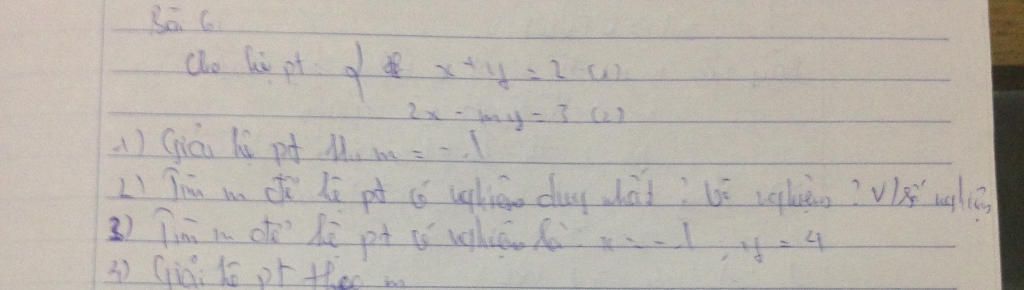 Bài 6.
Cho hệ pt { x + y = 2 (1)
2x - my = 3 (2)
1) Giải hệ pt khi m = -1
2) Tìm m để hệ pt có nghiệm duy nhất? Vô nghiệm? V/số nghiệm
3) Tìm m để hệ pt có nghiệm là x = -1, y = 4
3) Giải hệ pt theo m